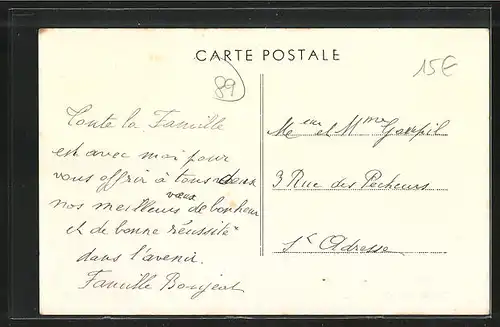 CARTE POSTALE
89
15€
Toute la Famille
est avec moi pour
vous offrir à tous deux
nos meilleurs vœux de bonheur
et de bonne réussite
dans l'avenir.
Famille
Meeur et Mme
3 Rue des Pecheurs
Ste Adresse